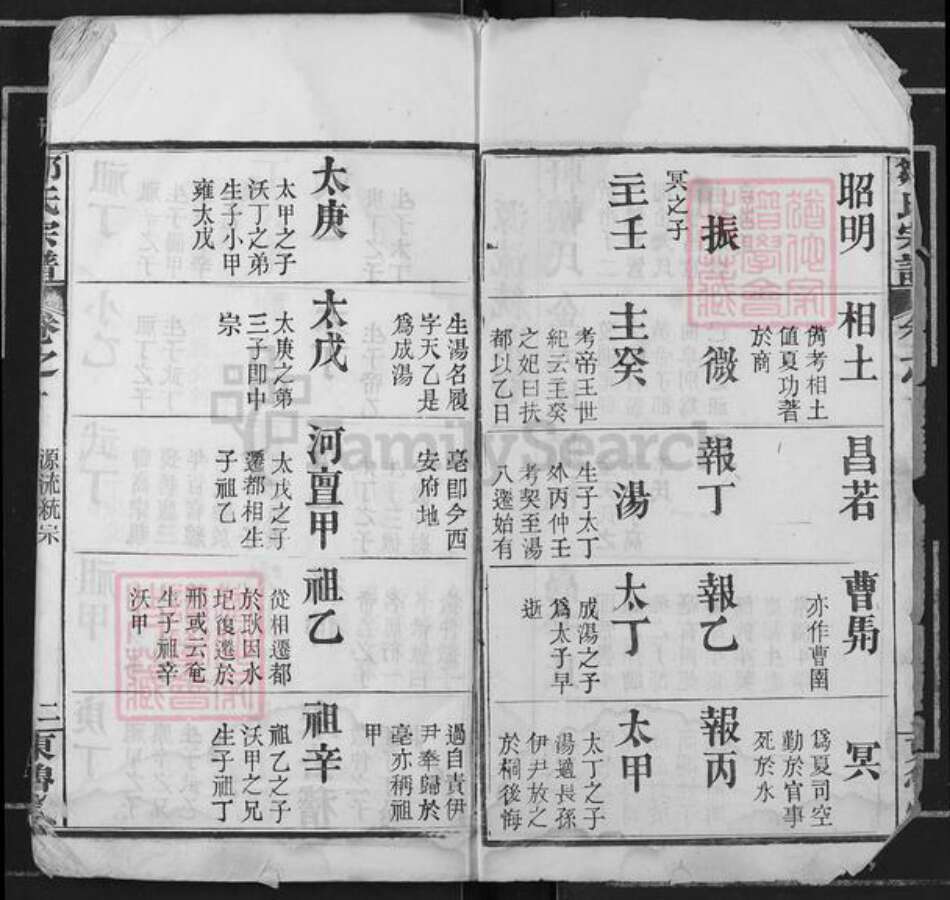 昭明
相土
儕考相土
值夏功著
於商
昌若
曹圉
亦作曹圉
冥
爲夏司空
勤於官事
死於水
振
冥之子
微
報丁
報乙
報丙
主壬
主癸
考帝王世
紀云主癸
之妃曰扶
都以乙日
生湯名履
字天乙是
爲成湯
湯
生子太丁
外丙仲壬
考契至湯
八遷始有
亳卽今西
安府地
太丁
成湯之子
爲太子早
逝
太甲
太丁之子
湯適長孫
伊尹放之
於桐後悔
過自責伊
尹奉歸於
亳亦稱祖
甲
太庚
太甲之子
沃丁之弟
生子小甲
雍太戊
太戊
太庚之第
三子卽中
宗
河亶甲
太戊之子
遷都相生
子祖乙
祖乙
從相遷都
於耿因水
圮復遷於
邢或云奄
生子祖辛
沃甲
祖辛
祖乙之子
沃甲之兄
生子祖丁
氏宗譜
卷之
源流統宗
二
東魯
FamilySearch